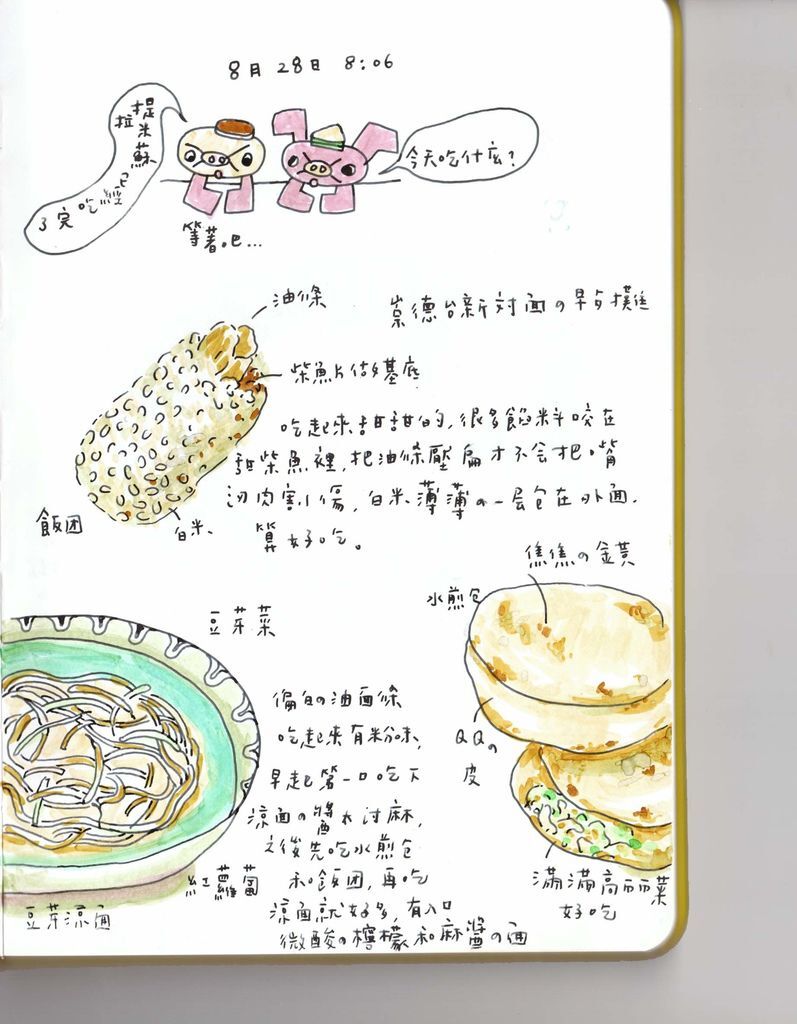 8月28日 8:06
提拉米蘇
已經吃完了
今天吃什麼?
等著吧...
油條
崇德台新対面の早
柴魚片做基底
吃起來甜甜的,很多餡料咬在
甜柴魚裡,把油條壓扁才不会把嘴
边肉割傷,白米薄薄の一层包在外面.
算好吃。
飯团
白米
焦焦の金黃
水煎包
豆芽菜
偏白の油面條
吃起來有米粉味,
早起第一口吃下
涼面の醬
QQの
皮
之後先吃水煎包
和飯团,再吃
涼面就好多,有入口
微酸の檸檬和麻醬の面
紅蘿蔔
豆芽涼面
滿滿高丽菜
好吃